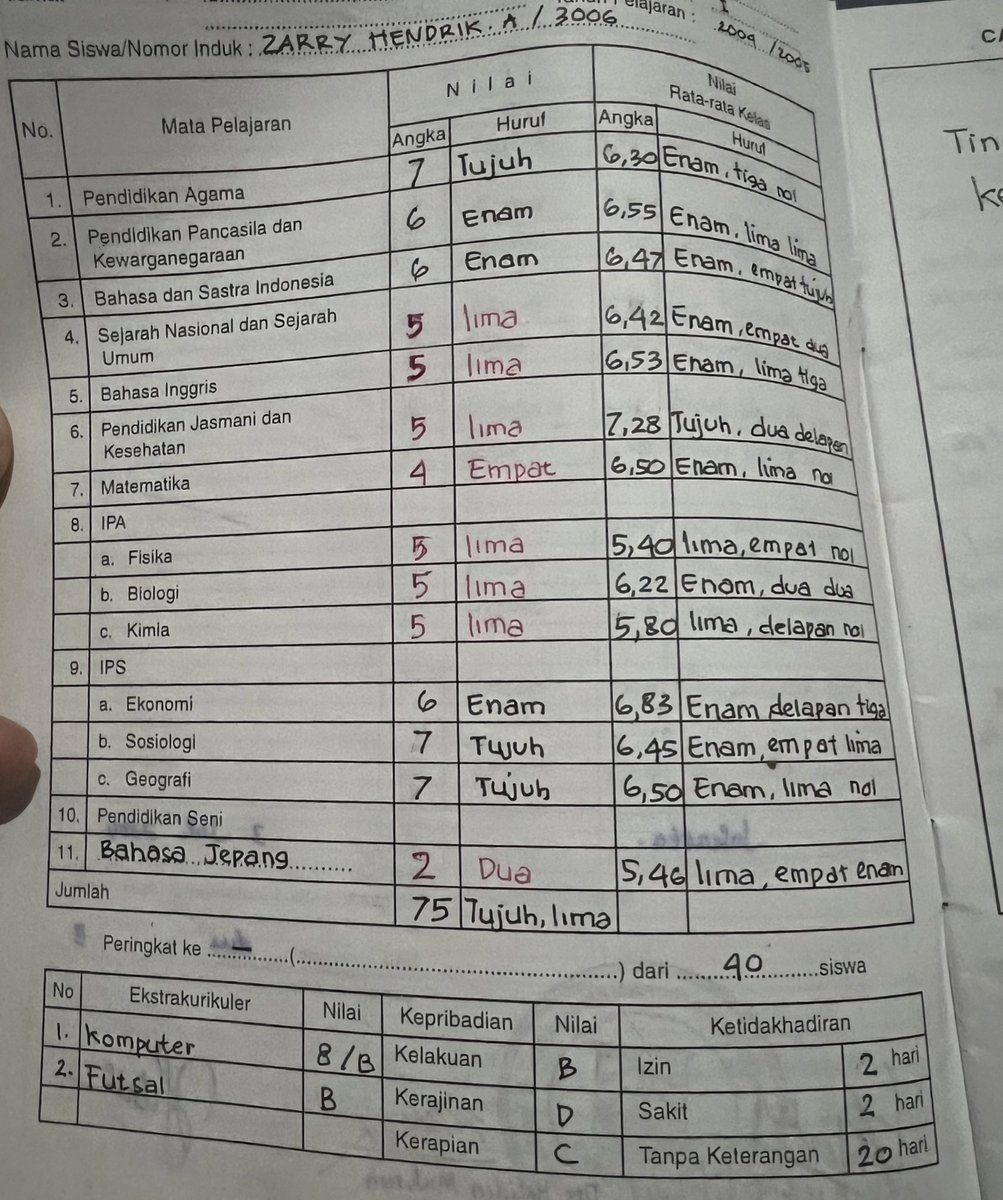 elajaran : I
2004/2005
Nama Siswa/Nomor Induk : ZARRY HENDRIK A / 3006
No. Mata Pelajaran Nilai Nilai Rata-rata Kelas
Angka Huruf Angka Huruf
1. Pendidikan Agama 7 Tujuh 6,30 Enam, tiga nol
2. Pendidikan Pancasila dan Kewarganegaraan 6 Enam 6,55 Enam, lima lima
3. Bahasa dan Sastra Indonesia 6 Enam 6,47 Enam, empat tujuh
4. Sejarah Nasional dan Sejarah Umum 5 lima 6,42 Enam, empat dua
5. Bahasa Inggris 5 lima 6,53 Enam, lima tiga
6. Pendidikan Jasmani dan Kesehatan 5 lima 7,28 Tujuh, dua delapan
7. Matematika 4 Empat 6,50 Enam, lima nol
8. IPA
a. Fisika 5 lima 5,40 lima, empat nol
b. Biologi 5 lima 6,22 Enam, dua dua
c. Kimia 5 lima 5,80 lima, delapan nol
9. IPS
a. Ekonomi 6 Enam 6,83 Enam delapan tiga
b. Sosiologi 7 Tujuh 6,45 Enam, empat lima
c. Geografi 7 Tujuh 6,50 Enam, lima nol
10. Pendidikan Seni
11. Bahasa Jepang 2 Dua 5,46 lima, empat enam
Jumlah 75 Tujuh, lima
Peringkat ke – (...) dari 40 siswa
No Ekstrakurikuler Nilai Kepribadian Nilai Ketidakhadiran
1. Komputer 8/B Kelakuan B Izin 2 hari
2. Futsal B Kerajinan D Sakit 2 hari
Kerapian C Tanpa Keterangan 20 hari
CA
Tin
ke